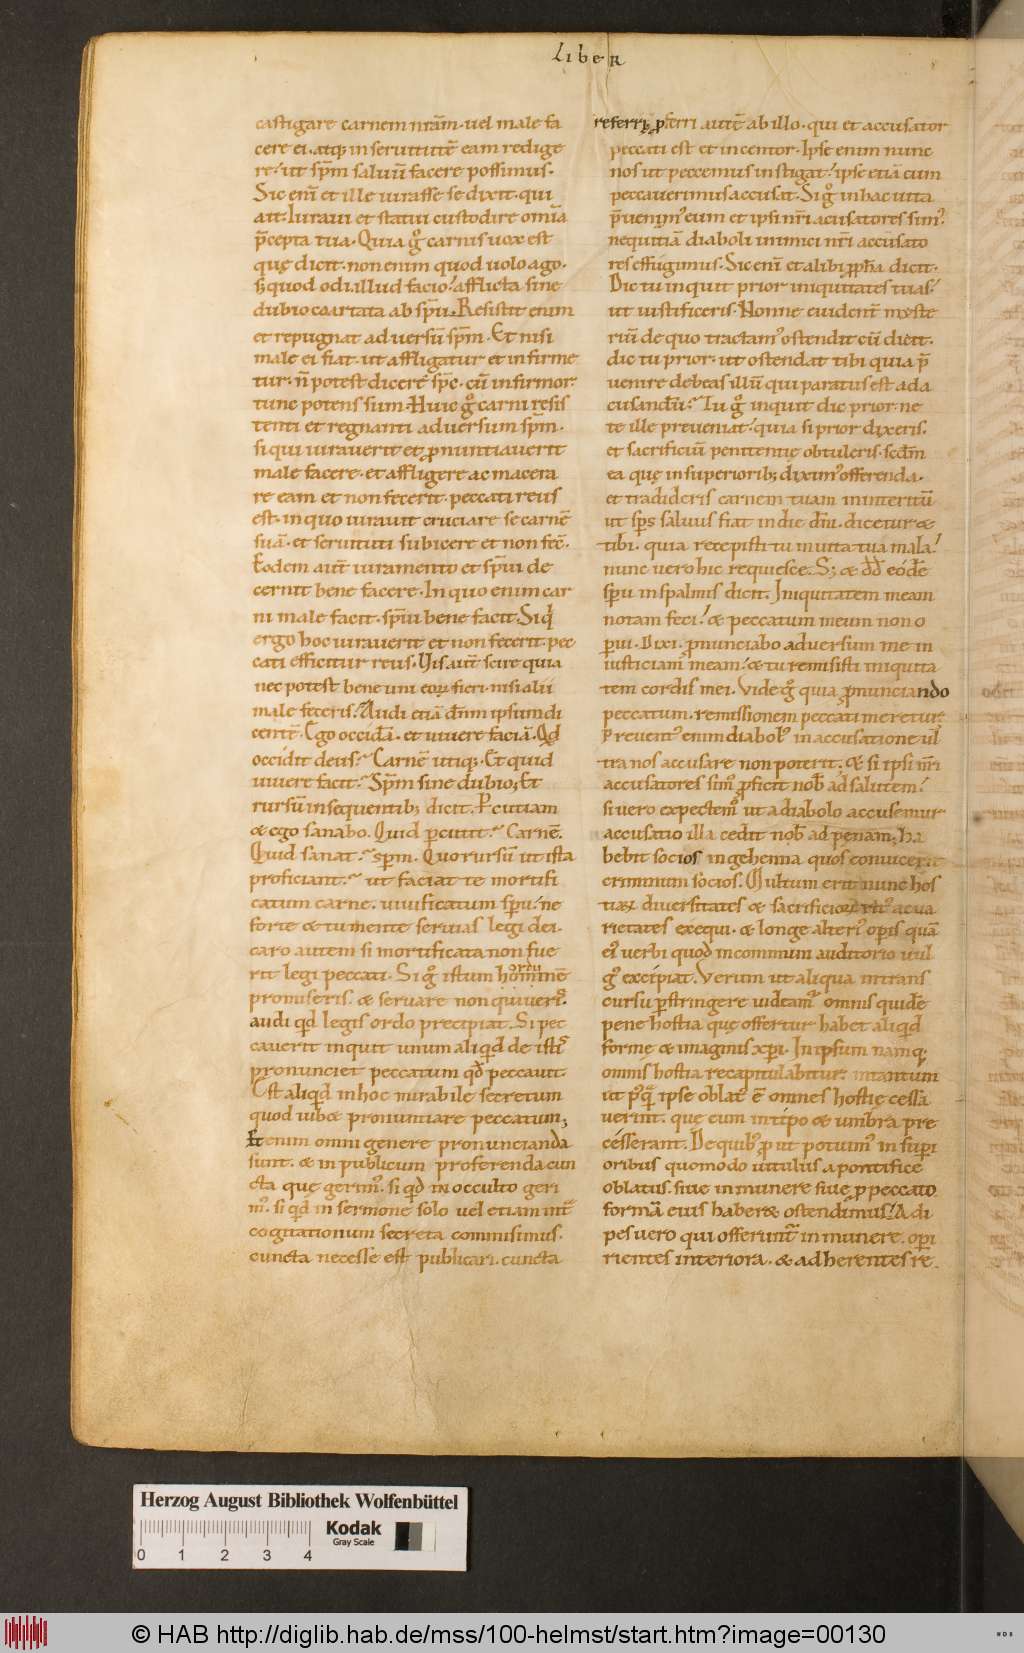 Liber
castigare carnem nr̄am. uel male fa
cere ei. atq; in seruitutē eam redige
re. ut sp̄m saluū facere possimus.
Sic enī et ille iurasse se dixit. qui
ait. Iuraui et statui custodire om̄ia
p̄cepta tua. Quia g̊ carnis uox est
quę dicit. non enim quod uolo ago.
s; quod odi. illud facio. afflicta sine
dubio coartata ab sp̄u. Resistit enim
et repugnat aduersū sp̄m. Et nisi
male ei fiat. ut affligatur et infirme
tur. n̄ potest dicere sp̄c. cū infirmor.
tunc potens sum. Huic g̊ carni resis
tenti et regnanti aduersum sp̄m.
si qui iurauerit et pronuntiauerit
male facere. et affligere ac macera
re eam et non fecerit. peccati reus
est. in quo iurauit cruciare se carnē
suā. et seruituti subicere et non fec̄.
Eodem aut̄ iuramento et sp̄ui de
cernit bene facere. In quo enim car
ni male facit. sp̄ui bene facit. Siq̇
ergo hoc iurauerit et non fecerit. pec
cati efficitur reus. Uis aut̄ scire quia
nec potest bene uni eoꝝ fieri. nisi alii
male feceris. Audi etiā dn̄m ipsum di
centē. Ego occidā. et uiuere faciā. Qd̄
occidit deus? Carnē utiq;. Et quid
uiuere facit? Sp̄m sine dubio; Et
rursū in sequentib; dicit. Ꝑcutiam
& ego sanabo. Quid ꝑcutit? Carnē.
Quid sanat? sp̄m. Quo rursū ut ista
proficiant? ut faciat te mortifi
catum carne. uiuificatum sp̄u. ne
forte & tu mente seruias legi dei.
caro autem si mortificata non fue
rit legi peccati. Si g̊ istum hominē
promiseris. & seruare non quiueris.
audi qd̄ legis ordo precipiat. Si pec
cauerit inquit unum aliqd̄ de istis
pronunciet peccatum qd̄ peccauit.
Est aliqd̄ in hoc mirabile secretum
quod iub& pronuntiare peccatum;
Etenim omni genere pronuncianda
sunt. & in publicum proferenda cun
cta quę gerim᷒. si qd̄ in occulto geri
m᷒. si qd̄ in sermone solo uel etiam int̄
cogitationum secreta commisimus.
cuncta necesse est publicari. cuncta
referri; ꝓferri autē ab illo. qui et accusator
peccati est et incentor. Ipse enim nunc
nos ut peccemus instigat. ipse etiā cum
peccauerimus accusat. Si g̊ in hac uita
p̄uenim᷒ eum et ipsi nr̄i acusatores sim᷒.
nequitiā diaboli inimici nr̄i accusato
res effugimus. Sic enī et alibi ꝓph̄a dicit.
Dic tu inquit prior iniquitates tuas.
ut iustificeris. Nonne euident̄ myste
riū de quo tractam᷒ ostendit cū dicit.
dic tu prior. ut ostendat tibi quia p̄
uenire debeas illū qui paratus est ad a
cusandū. Tu g̊ inquit dic prior. ne
te ille preueniat. quia si prior dixeris.
et sacrificiū penitentię obtuleris. scd̄m
ea quę in superiorib; dixim᷒ offerenda.
et tradideris carnem tuam in interitū
ut sp̄s saluus fiat in die dn̄i. dicetur &
tibi. quia recepisti tu in uita tua mala.
nunc uero hic requiesce. S; & dd̄ eodē
sp̄u in psalmis dicit. Iniquitatem meam
notam feci. & peccatum meum non o
perui. Dixi. ꝓnunciabo aduersum me in
iusticiam meam. & tu remisisti iniquita
tem cordis mei. Vide g̊ quia ꝓnunciando
peccatum. remissionem peccati meretur.
Preuent᷒ enim diabol᷒ in accusatione ul
tra nos accusare non poterit. & si ipsi nr̄i
accusatores sim᷒ ꝓficit nob̄ ad salutem.
si uero expectem᷒ ut a diabolo accusemur
accusatio illa cedit nob̄ ad penam. ha
bebit socios in gehenna quos conuicerit
criminum socios. Multum erit nunc hos
tiaꝝ diuersitates & sacrificioꝝ rit᷒ ac ua
rietates exequi. & longe alteri᷒ oꝑis quā
ei᷒ uerbi quod in commun auditorio uul
g᷒ excipiat. Verum ut aliqua in trans
cursu ꝑstringere uideam᷒ omnis quidē
pene hostia quę offertur habet aliqd̄
formę & imaginis xp̄i. In ipsum namq;
omnis hostia recapitulabitur. intantum
ut p᷒q̄ ipse oblat᷒ ē omnes hostię cessa
uerint. quę eum in tipo & umbra pre
cesserant. De quib᷒ ꝓut potuim᷒ in supi
oribus quomodo uitulus a pontifice
oblatus. siue in munere siue ꝓ peccato
formā eius haber& ostendimus. Adi
pes uero qui offerunt᷒ in munere. oꝑi
rientes interiora. & adherentes re
Herzog August Bibliothek Wolfenbüttel
0 1 2 3 4
Kodak
Gray Scale
© HAB http://diglib.hab.de/mss/100-helmst/start.htm?image=00130